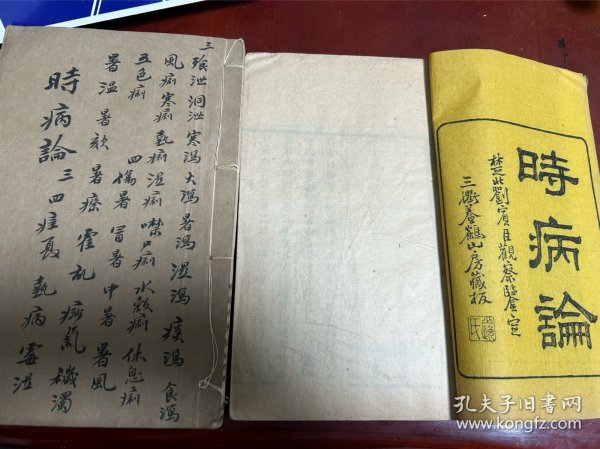 三 飱泄 洞泄 寒瀉 火瀉 暑瀉 湿瀉 痰瀉 食瀉
風痢 寒痢 熱痢 湿痢 噤口痢 水穀痢 休息痢
五色痢 四 傷暑 冒暑 中暑 暑風
暑温 暑欬 暑瘵 霍乱 痧氣 穢濁
時病論 三四 疰夏 熱病 霉湿
時病論
楚北劉賓臣觀察鑒定
三衢養鶴山房藏板
孔夫子旧书网
www.kongfz.com